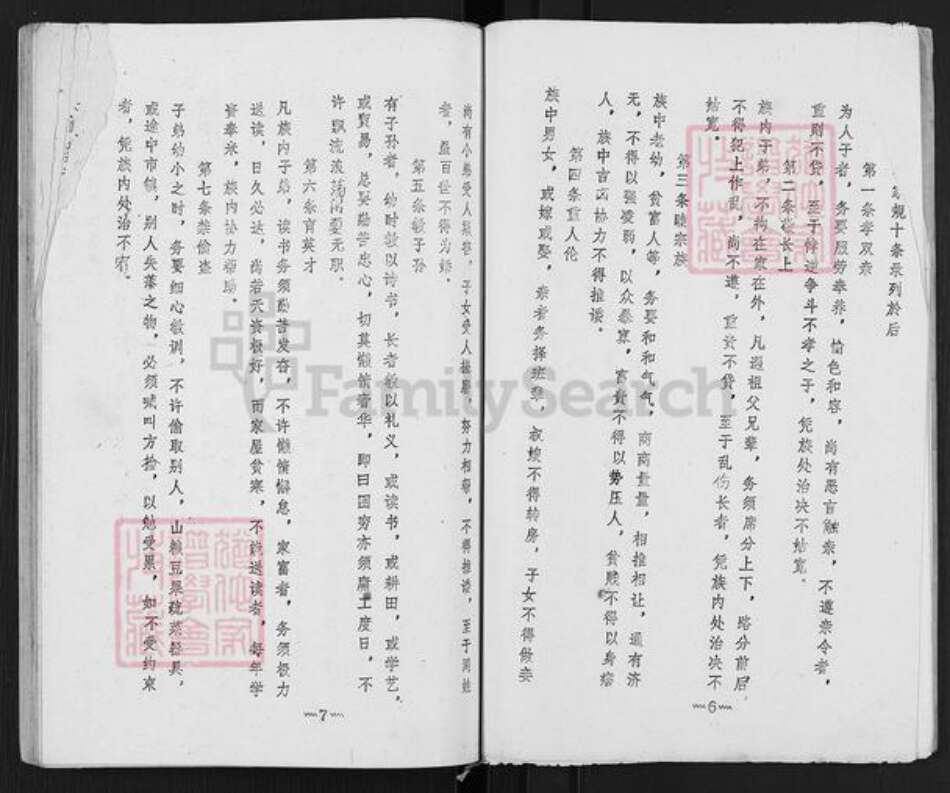 规十条录列於后
第一条孝双亲
为人子者，务要服劳奉养，愉色和容，尚有恶言触亲，不遵亲令者，
重则不贷，至于忤逆争斗不孝之子，凭族处治决不姑宽。
第二条敬长上
族内子弟，不拘在家在外，凡遇祖父兄辈，务须席分上下，路分前后，
不得犯上作乱，尚不遵，重责不贷，至于乱伤长者，凭族内处治决不
姑宽。
第三条睦宗族
族中老幼，贫富人等，务要和和气气，商商量量，相推相让，通有济
无，不得以强凌弱，以众暴寡，富贵不得以势压人，贫贱不得以身
人，族中言 协力不得推诿。
第四条重人伦
族中男女，或嫁或娶，亲者务择班辈，叔嫂不得转房，子女不得做妾
尚有小 受人 ，子女受人 ，努力相 ，不得推诿，至于同姓
者，虽百世不得为婚。
第五条教子孙
有子孙者，幼时教以诗书，长者教以礼义，或读书，或耕田，或学艺，
或贸易，总要勤苦忠心，切莫懒惰奢华，即曰困穷亦须庸工度日，不
许飘流浪荡 无职。
第六条育英才
凡族内子弟，读书务须勤苦发奋，不许懒惰懈怠，家富者，务须极力
送读，日久必达，尚若天资极好，而家屋贫寒，不能送读者，每年学
资奉米，族内协力帮助。
第七条禁偷盗
子弟幼小之时，务要细心教训，不许偷取别人，山粮豆果疏菜轻具，
或途中市镇，别人失落之物，必须喊叫方捡，以勉受累，如不受约束
者，凭族内处治不宥。
6
7
FamilySearch